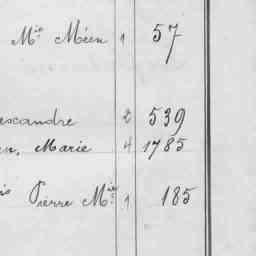 Mⁱⁿ Méen 1 57
escandre 2 539
en, Marie 4 1785
Pierre Mⁱⁿ 1 185